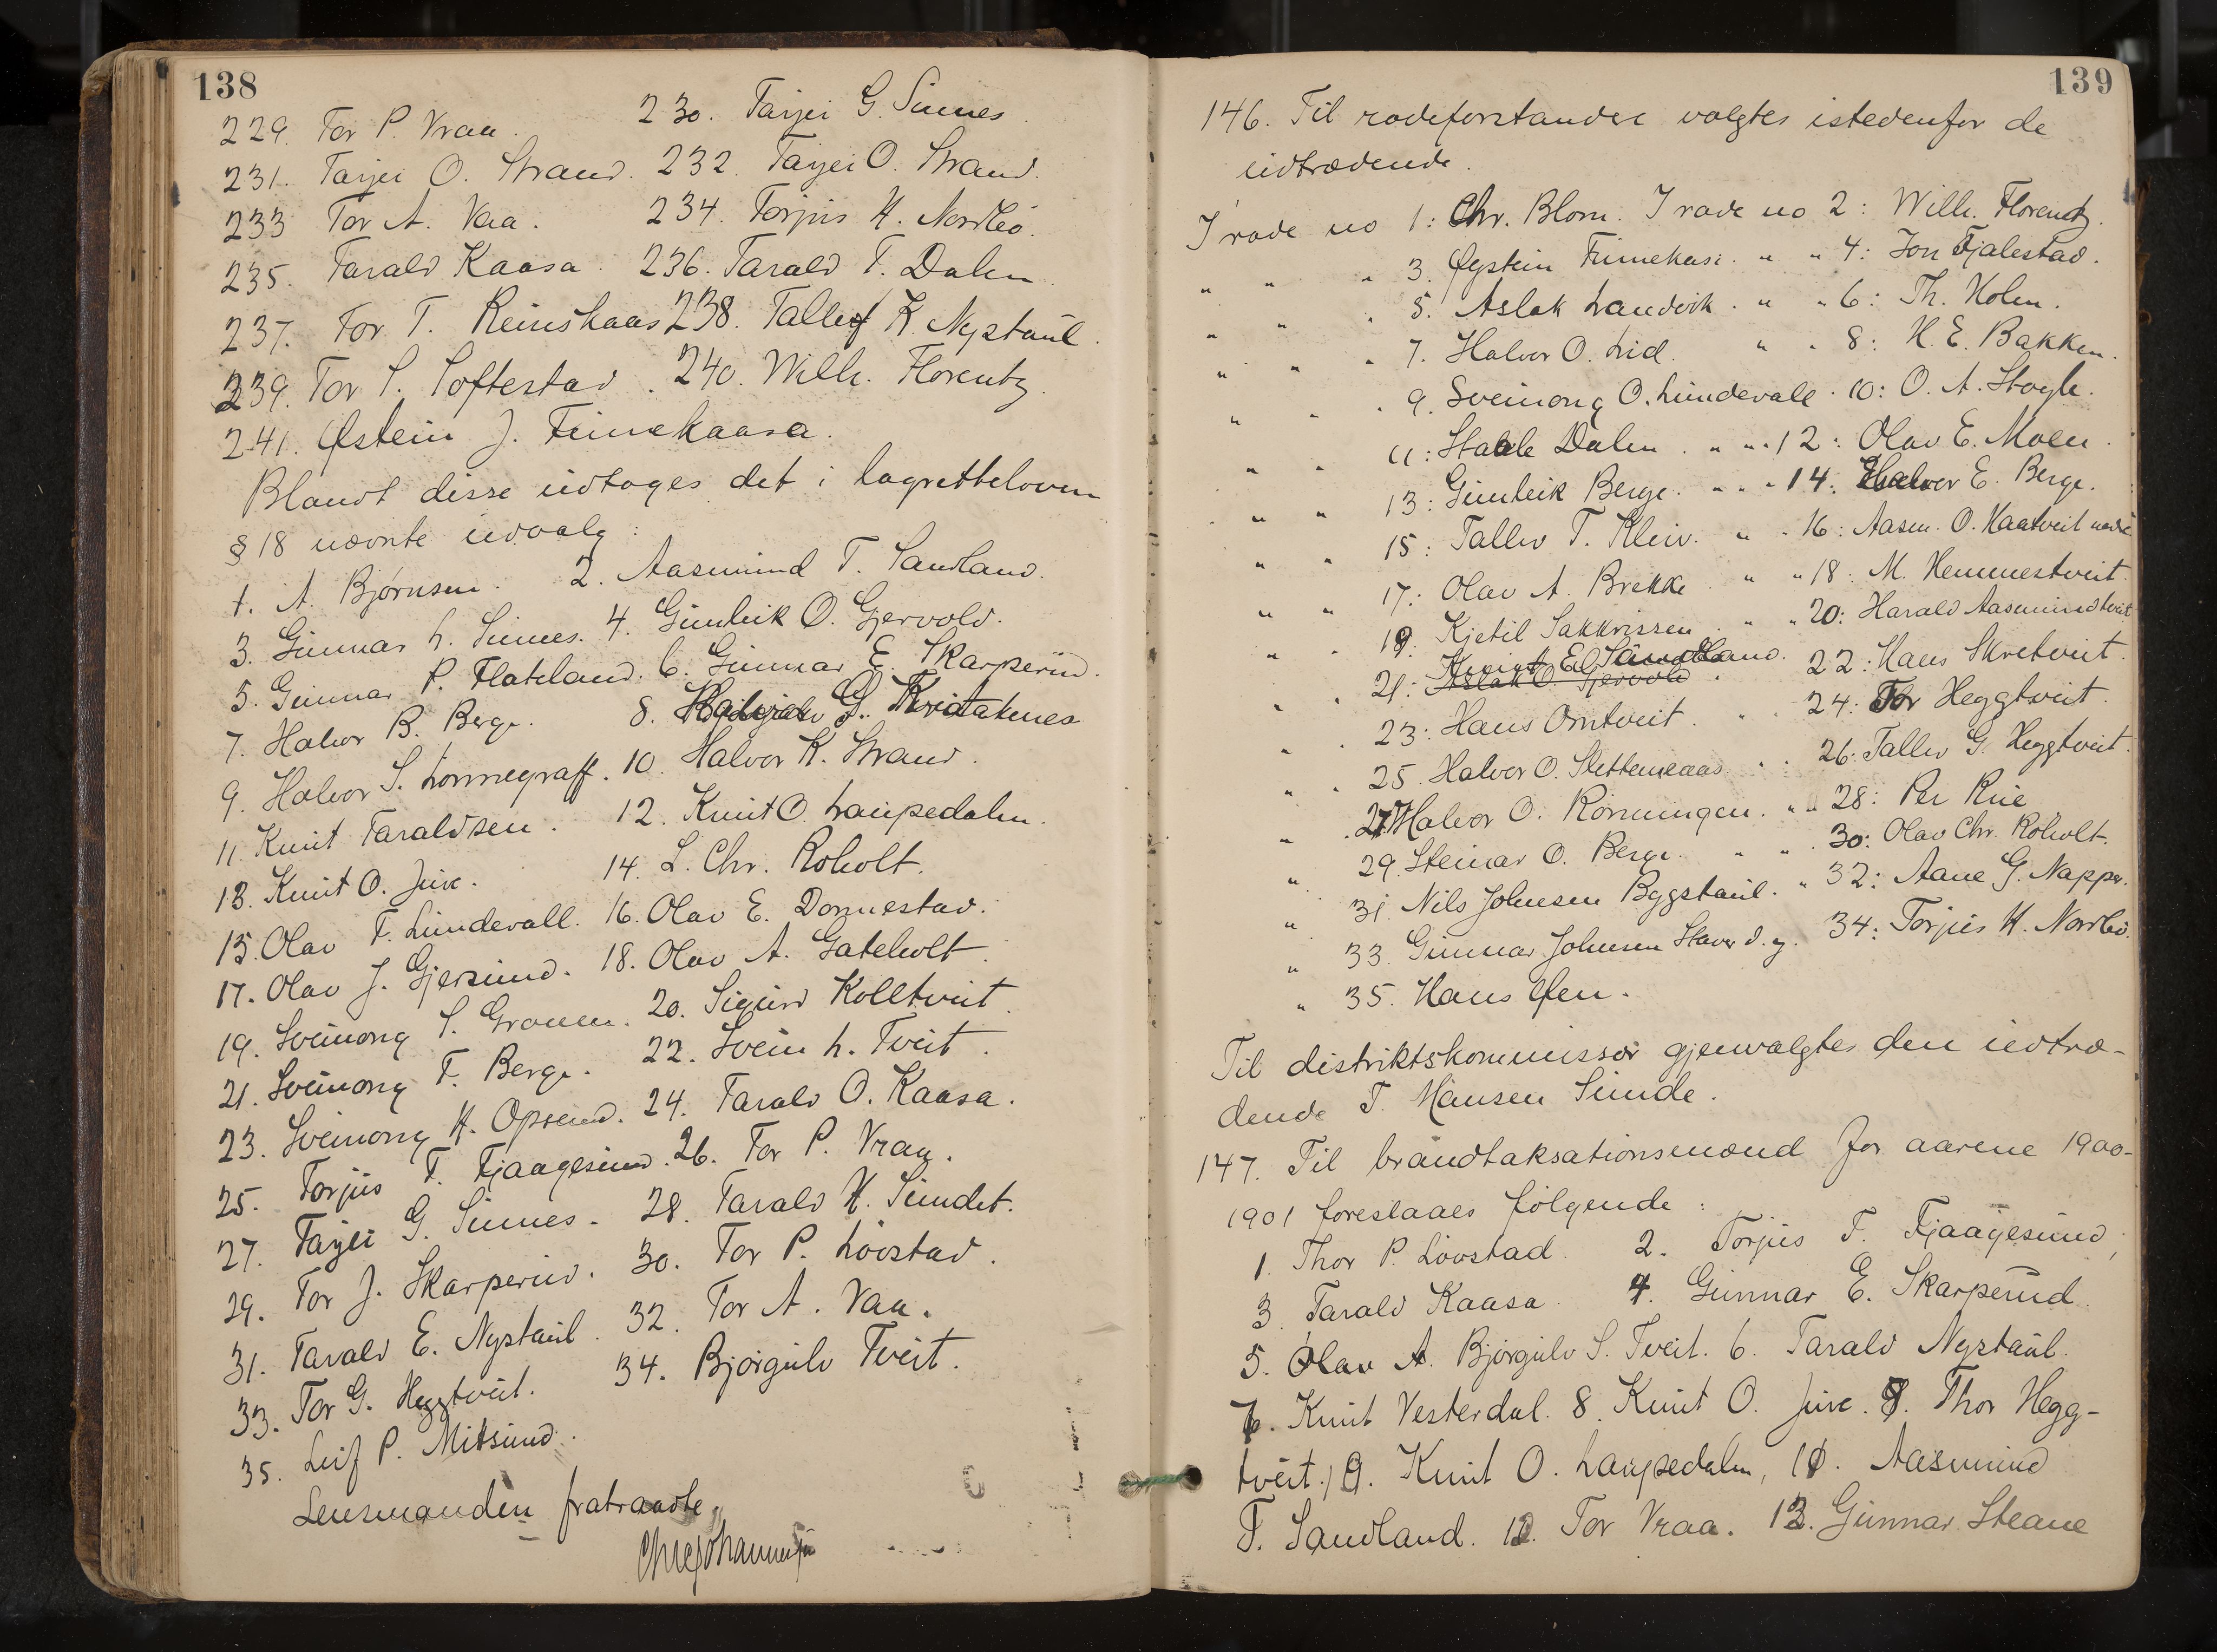 138
229. Tor P. Vraa. 230. Tarjei G. Sunnes.
231. Tarjei O. Strand. 232. Tarjei O. Strand.
233 Tor A. Vaa. 234. Torjus H. Nordbö.
235. Tarald Kaasa. 236. Tarald T. Dalen
237. Tor T. Reinskaas 238. Tallef K. Nystaul.
239. Tor S. Softestad. 240. Wilh. Florentz.
241. Østein J. Finnekaasa.
Blandt disse udtoges det i lagretteloven
§ 18 nævnte udvalg:
1. A. Bjørnsen. 2. Aasmund T. Sandland.
3. Gunnar L. Sunnes. 4. Gunleik O. Gjervold.
5. Gunnar P. Flateland. 6. Gunnar E. Skarperud.
7. Halvor B. Berge. 8.
9. Halvor S. Lonnegraff. 10. Halvor K. Strand.
11. Knut Taraldsen. 12. Knut O. Laupedalen.
13. Knut O. Juve. 14. L. Chr. Roholt.
15. Olav T. Lundevall. 16. Olav E. Dommestad.
17. Olav J. Gjersund. 18. Olav A. Gateholt.
19. Sveinong S. Groven. 20. Sigurd Kolltveit.
21. Sveinong T. Berge. 22. Svein L. Tveit.
23. Sveinong H. Opsund. 24. Tarald O. Kaasa.
25. Torjus T. Fjaagesund. 26. Tor P. Vraa.
27. Tarjei G. Sunnes. 28. Tarald H. Sundet.
29. Tor J. Skarperud. 30. Tor P. Lövstad.
31. Tarald E. Nystaul. 32. Tor A. Vaa.
33. Tor G. Heggtveit. 34. Bjørgulv Tveit.
35. Leif P. Mitsund.
Lensmanden fratraadte.
139
146. Til rodeforstandere valgtes istedenfor de
udtrædende.
I rode no 1: Chr. Blom. I rode no 2: Wilh. Florentz.
" " " 3. Øystein Finnekasa. " " 4: Jon Fjalestad.
" " " 5. Aslak Landvik. " " 6: Th. Holm.
" " " 7. Halvor O. Lid. " " 8: H. E. Bakken.
" " " 9. Sveinong O. Lundevall. 10: O. A. Stoyle.
" " 11: Staale Dalen. " " " 12: Olav E. Moen.
" " 13: Gunleik Berge. " " " 14: Halvor E. Berge.
" " 15: Tallev T. Kleiv. " " 16: Aasm. O. Haatveit nedre
" " 17: Olav A. Brekke " " 18: M. Hemmestveit.
" " 19: Kjetil Sakkrissen. " " 20: Harald Aasmundtveit
" " 21: Aslak O. Gjervold Knut E. Sandland. 22: Hans Skretveit.
" " 23: Hans Omtveit. " " 24: Tor Heggtveit.
" " 25. Halvor O. Slettemeaas. " " 26: Tallev G. Heggtveit.
" " 27 Halvor O. Rönningen. " " 28: Per Rue
" 29. Steinar O. Berge. " " 30: Olav Chr. Roholt.
" 31. Nils Johnsen Byggstaul. " 32: Aane G. Napper.
" 33. Gunnar Johnsen Staver d. y. 34: Torjus H. Nordbö.
" 35. Hans Øen.
Til distriktskommissær gjenvalgtes den udtræ-
dende T. Hansen Sunde.
147. Til brandtaksationsmænd for aarene 1900-
1901 foreslaaes følgende:
1. Thor P. Lövstad. 2. Torjus T. Fjaagesund,
3. Tarald Kaasa. 4. Gunnar E. Skarperud.
5. Olav A. Bjørgulv S. Tveit. 6. Tarald Nystaul.
7. Knut Vesterdal. 8. Knut O. Juve. 9. Thor Hegg-
tveit. 10. Knut O. Laupedalen, 11. Aasmund
T. Sandland. 12. Tor Vraa. 13. Gunnar Steane